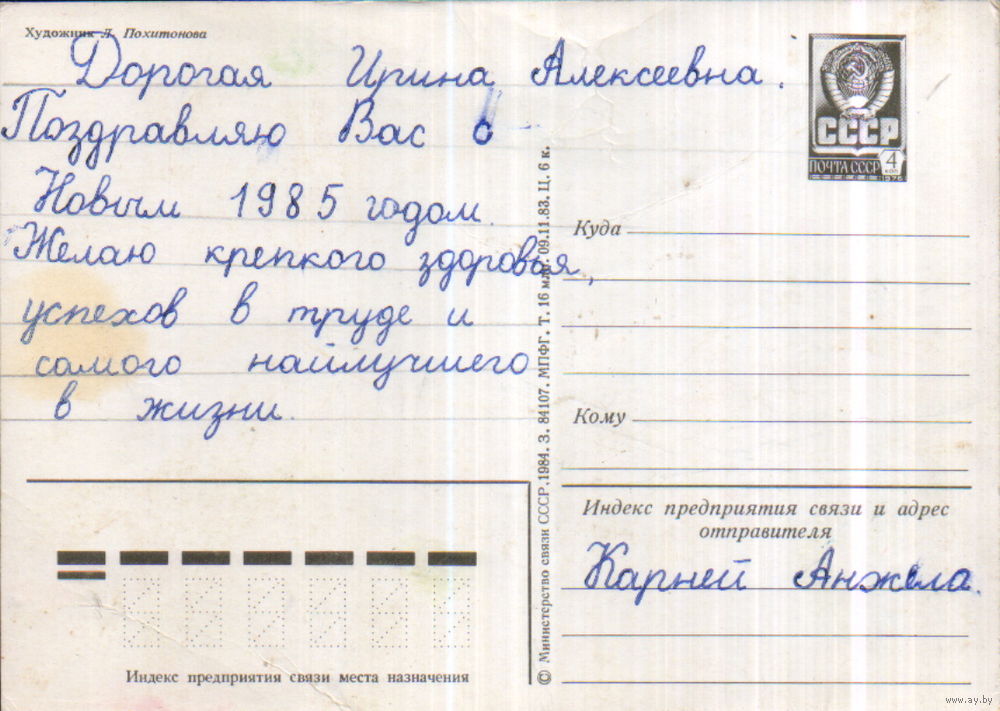 Художник Л. Похитонова
Дорогая Ирина Алексеевна.
Поздравляю Вас с
Новым 1985 годом.
Желаю крепкого здоровья,
успехов в труде и
самого наилучшего
в жизни.
СССР
ПОЧТА СССР 4 коп
1976
Куда
Кому
© Министерство связи СССР. 1984. З. 84107. МПФГ. Т. 16 млн. 09.11.83. Ц. 6 к.
Индекс предприятия связи и адрес
отправителя
Карней Анжела.
Индекс предприятия связи места назначения
www.ay.by